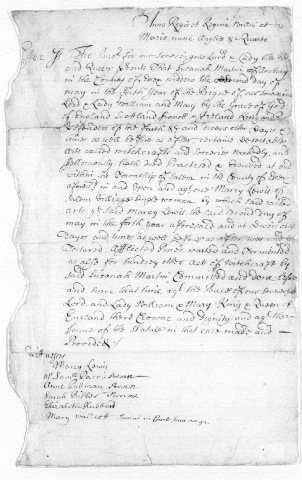 Anno Regis et Reginæ Willm et
Mariæ nunc Angliæ &c Quarto
Essex ss The Jurors for our Sovereigne Lord & Lady the King
and Queen p'sents That Susanah Martin of Amsbury
in the County of Essex Widdow the Second day of
may in the forth Year of the Reigne of our Sovereigne
Lord & Lady William and Mary by the Grace of God
of England Scottland France & Ireland King and Queen
Defenders of the faith &c and divers other Dayes and
times as well before as after, certaine Detestable
arts called witchcrafts and Sorceries Wickedly and
fellonously hath used Practiced & Exercised at and
within the Township of Salem in the County of Essex
aforesd in and upon and agt one Marcy Lewis of
Salem Villiage Single woman by which said wicked
arts ye said Marcy Lewis the said Second day of
may in the forth Year aforesaid and at Divers other
Dayes and times as well before as after was and is
Tortured Afflicted Pined wasted and Tormented
as also for Sundrey other Acts of Witchcraft by
said Susanah Martin Committed and done before
and Since that time agt the Peace of our Sovereigne
Lord and Lady William & Mary King & Queen of
England there Crowne and dignity and agt the
forme of the Statute in that case made and
Provided
Witnesses
Marcy Lewis
Mr Samll Parris Sworn
Anne Puttman Sworn
Sarah Bibber Sworn
Elizabeth Hubbard
Mary Wallcott Sworne in Court June